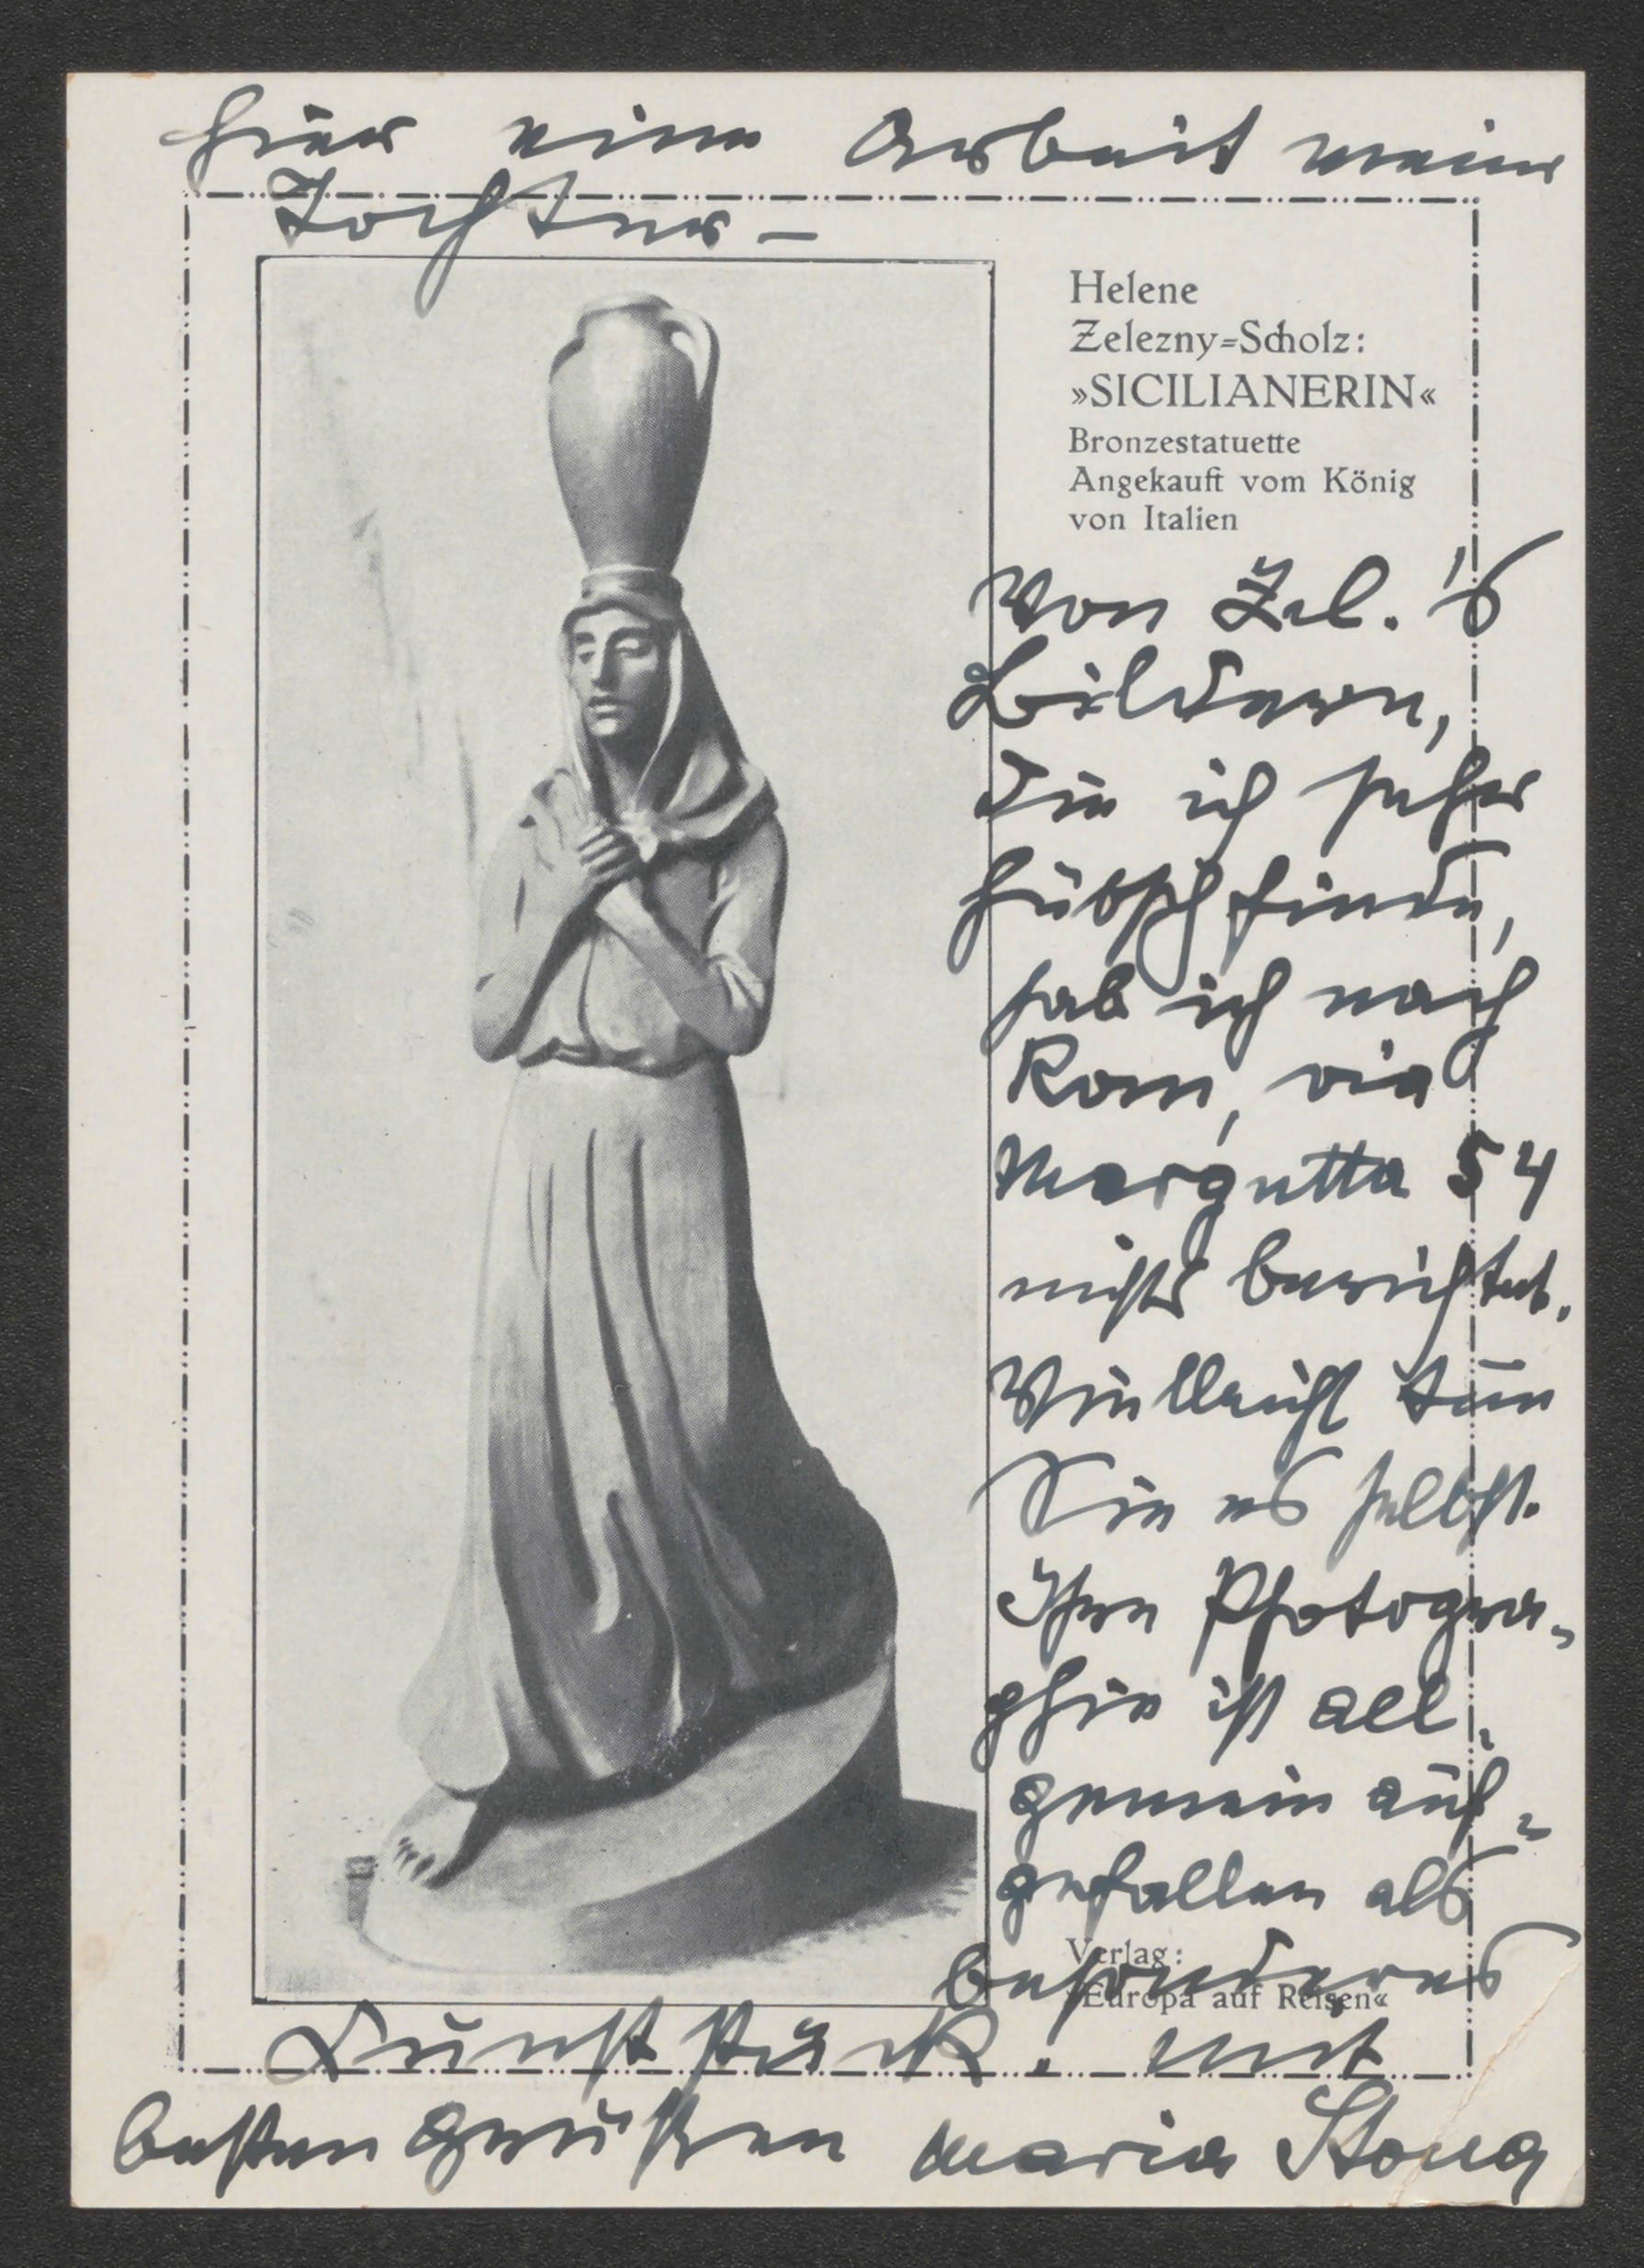 Hier eine Arbeit meiner
Tochter –
Helene
Zelezny=Scholz:
»SICILIANERIN«
Bronzestatuette
Angekauft vom König
von Italien
Von Zel.'s
Bildern,
die ich sehr
hübsch finde,
hab ich nach
Rom, via
Margutta 54
nichts berichtet.
Vielleicht tun
Sie es selbst.
Ihre Photogra-
phie ist all-
gemein auf-
gefallen als
besonderes
Verlag:
»Europa auf Reisen«
Kunststück. Mit
besten Grüßen Maria Stona